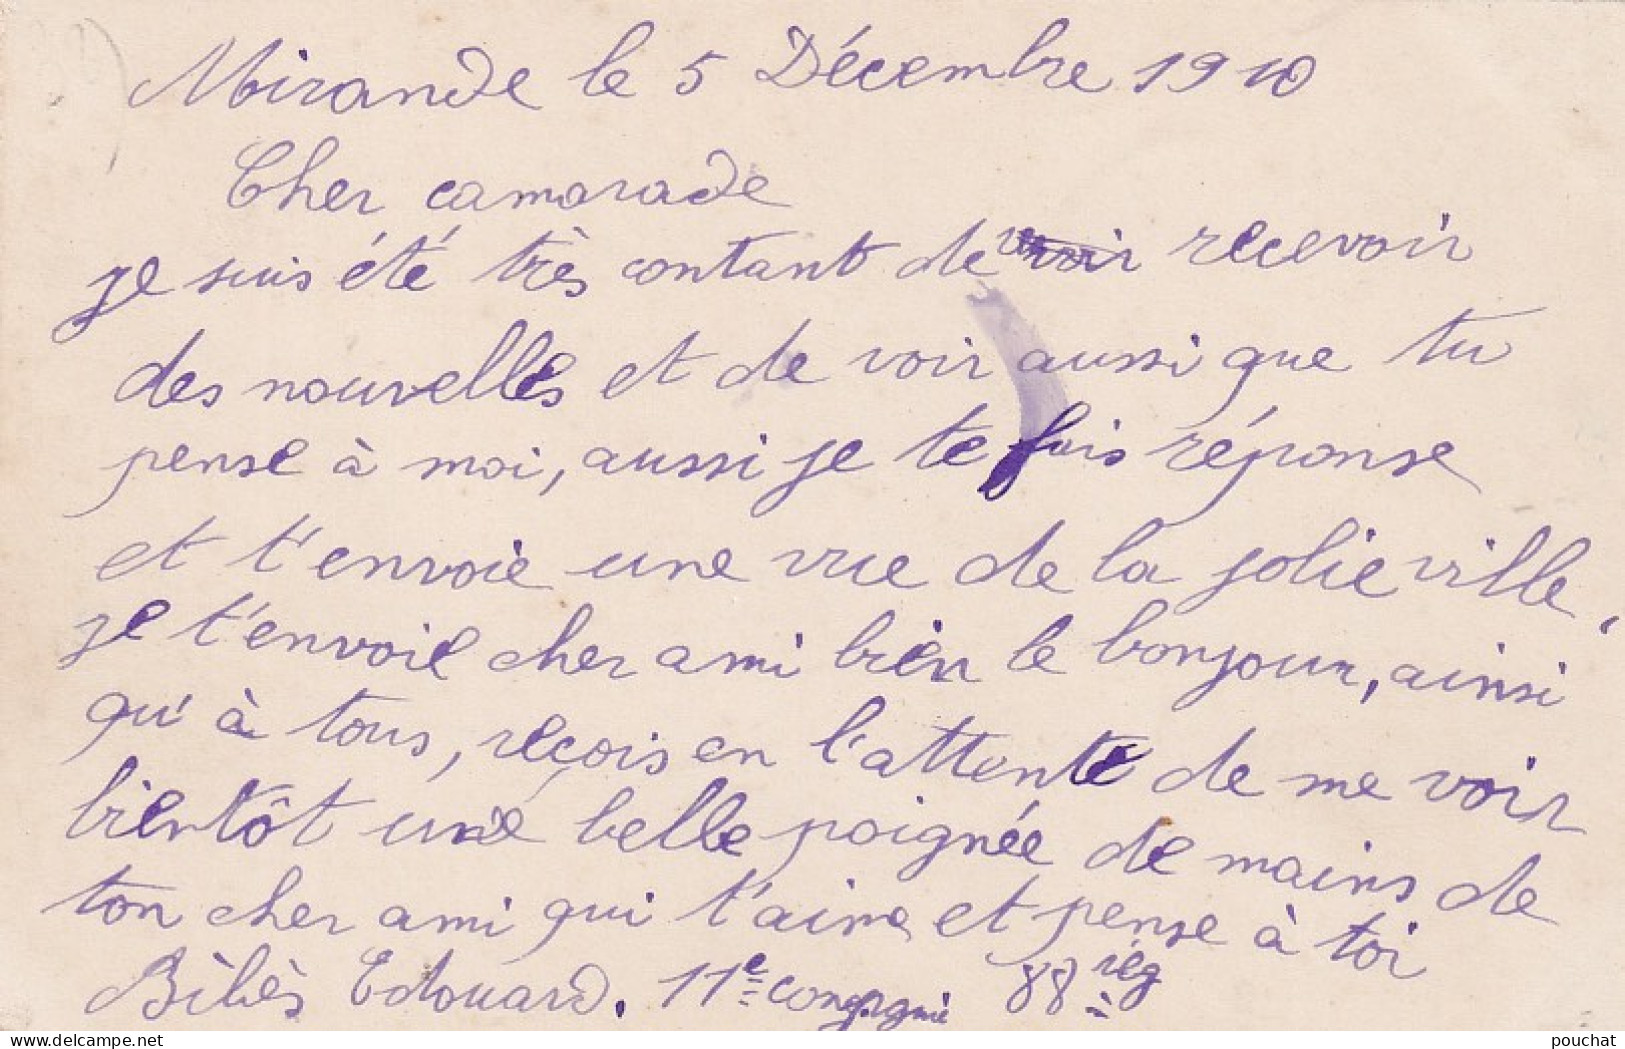 Mirande le 5 Décembre 1910
Cher camarade
je suis été très contant de recevoir
des nouvelles et de voir aussi que tu
pense à moi, aussi je te fais réponse
et t'envoie une vue de la jolie ville,
je t'envoie cher ami bien le bonjour, ainsi
qu'à tous, reçois en l'attente de me voir
bientôt une belle poignée de mains de
ton cher ami qui t'aime et pense à toi
Edouard. 11e compagnie 88 rég
pouchat
delcampe.net